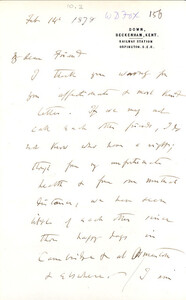 DOWN,
BECKENHAM, KENT.
RAILWAY STATION
ORPINGTON. S.E.R.
Feb 14th 1879
My dear Friend
I thank you warmly for
your affectionate & most kind
letter. If we may not
call each other friends, I do
not know who have a right,
though from my unfortunate
health & from our mutual
distance, we have seen
little of each other since
those happy days in
Cambridge & at
& elsewhere. I am